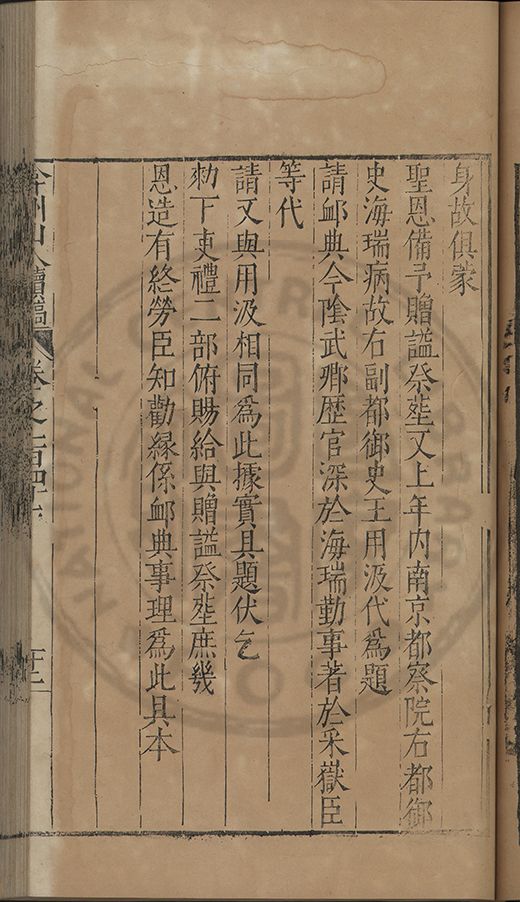 身故俱蒙
聖恩備予贈諡祭塟又上年內南京都察院右都御
史海瑞病故右副都御史王用汲代為題
請䘏典今陰武卿歷官深於海瑞勤事著於采嶽臣
等代
請又與用汲相同為此據實具題伏乞
勑下吏禮二部俯賜給與贈諡祭塟庶幾
恩造有終勞臣知勸緣係䘏典事理為此具本
弇州山人續稿
卷之一百四十
十二